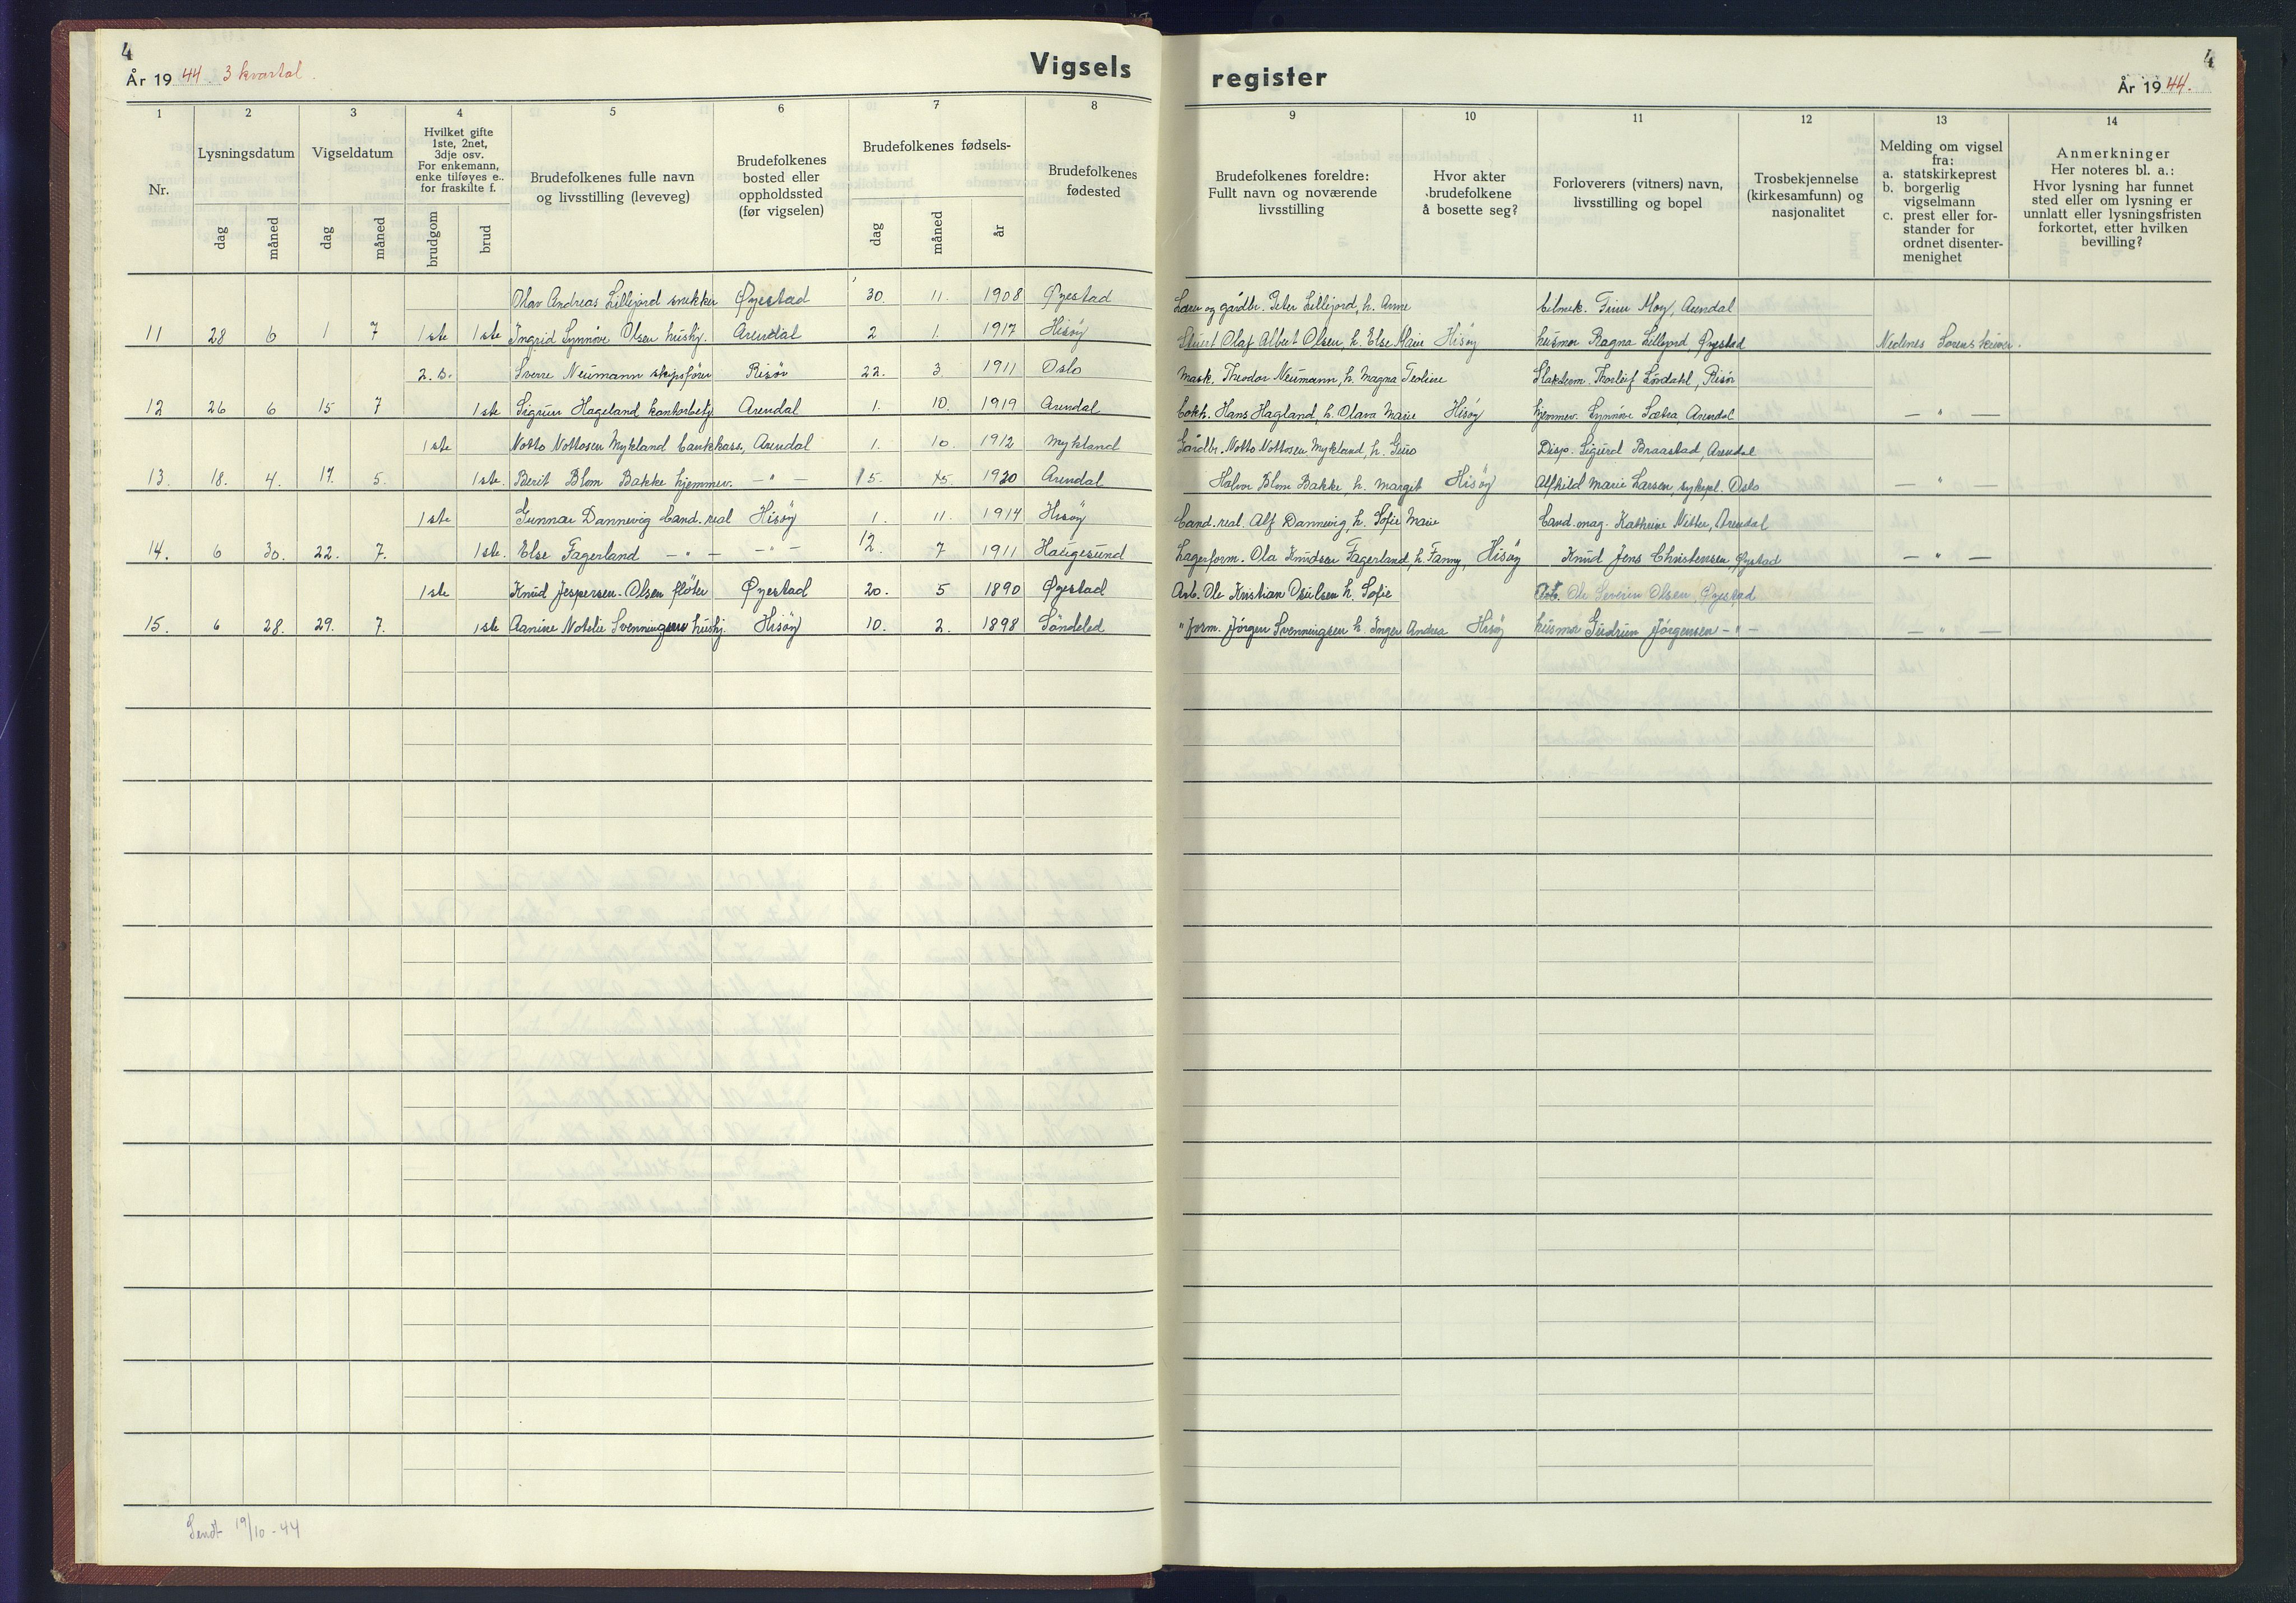 4
År 19 44. 3 kvartal.
Vigsels
1 2 3 4 5 6 7 8
Nr.
Lysningsdatum
dag måned
Vigseldatum
dag måned
Hvilket gifte
1ste, 2net,
3dje osv.
For enkemann,
enke tilføyes e..
for fraskilte f.
brudgom brud
Brudefolkenes fulle navn
og livsstilling (leveveg)
Brudefolkenes
bosted eller
oppholdssted
(før vigselen)
Brudefolkenes fødsels-
dag måned år
Brudefolkenes
fødested
Olav Andreas Lillejord snekker Øyestad 30. 11. 1908 Øyestad
11 28 6 1 7 1ste 1ste Ingrid Synnöve Olsen hushj. Arendal 2 1. 1917 Hisöy
2. Sverre Neumann skipsfører Risör 22. 3 1911 Oslo
12 26 6 15 7 1ste Sigrun Hageland kontorbetj. Arendal 1. 10. 1919 Arendal
1ste Notto Nottosen Mykland bankkass. Arendal 1. 10. 1912 Mykland
13. 18. 4. 17. 5. 1ste. Berit Blom Bakke hjemmev. — " — 15. 1920 Arendal
1ste Gunnar Dannevig Cand. real Hisöy 1. 11. 1914 Hisöy
14. 6 30. 22. 7. 1ste. Else Fagerland — " — — " — 12. 7 1911 Haugesund
1ste Knud Jespersen-Olsen fløter Øyestad 20. 5 1890 Øyestad
15. 6 28. 29. 7. 1ste Aanine Notelie Svenningsen hushj. Hisöy 10. 2. 1898 Söndeled
Sendt 19/10-44
4
register
År 19 44.
9 10 11 12 13 14
Brudefolkenes foreldre:
Fullt navn og noværende
livsstilling
Hvor akter
brudefolkene
å bosette seg?
Forloverers (vitners) navn,
livsstilling og bopel
Trosbekjennelse
(kirkesamfunn) og
nasjonalitet
Melding om vigsel
fra:
a. statskirkeprest
b. borgerlig
vigselmann
c. prest eller for-
stander for
ordnet disenter-
menighet
Anmerkninger
Her noteres bl. a.:
Hvor lysning har funnet
sted eller om lysning er
unnlatt eller lysningsfristen
forkortet, etter hvilken
bevilling?
Lærer og gårdbr. Peter Lillejord, h. Anne bilmek. Finn Moy, Arendal
Stuert Olaf Albert Olsen, h. Else Marie Hisöy husmor Ragna Lillejord, Øyestad Nedenes Sorenskriver.
Mask. Theodor Neumann, h. Magna Teoline Thorleif Lördahl, Risör
Hans Hagland, h. Olava Marie Hisöy hjemmev. Synnöve Sætra, Arendal — " —
Gårdbr. Notto Nottosen Mykland, h. Guro Disp. Sigurd Braastad, Arendal
Halvor Blom Bakke, h. Margit Hisöy Alfhild Marie Larsen, sykepl. Oslo — " —
Cand. real. Alf Dannevig, h. Sofie Marie Cand. mag. Kathrine Nitter, Arendal
Lagerform. Ola Knudsen Fagerland, h. Fanny, Hisöy Knud Jens Christensen, Øystad — " —
Arb. Ole Kristian h. Sofie Arb. Ole Severin Olsen, Øyestad
" form. Jörgen Svenningsen h. Inger Andrea Hisöy husmor Gudrun Jörgensen — " — — " —